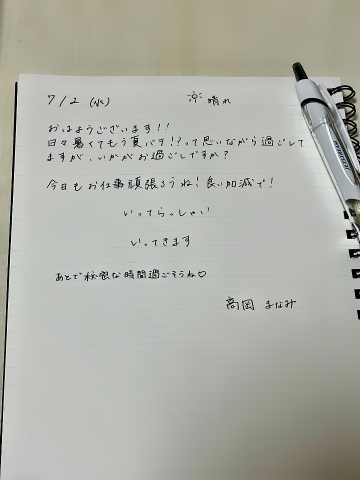 7/2 (水) 晴れ
おはようございます!!
日々暑くてもう夏バテ!?って思いながら過ごして
ますが、いかがお過ごしですか?
今日もお仕事頑張ろうね!良い加減で!
いってらっしゃい
いってきます
あとで秘密な時間過ごそうね♡
高岡 まなみ